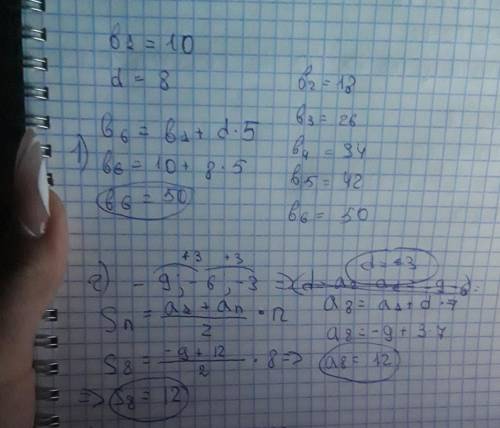 в1 = 10
d = 8
в2 = 18
в3 = 26
в4 = 34
в5 = 42
в6 = 50
1) в6 = в1 + d · 5
в6 = 10 + 8 · 5
в6 = 50
2) -9; -6; -3 =>
+3 +3
d = +3
Sn = a1 + an / 2 · n
a8 = a1 + d · 7
a8 = -9 + 3 · 7
S8 = -9 + 12 / 2 · 8 =>
a8 = 12
=> S8 = 12